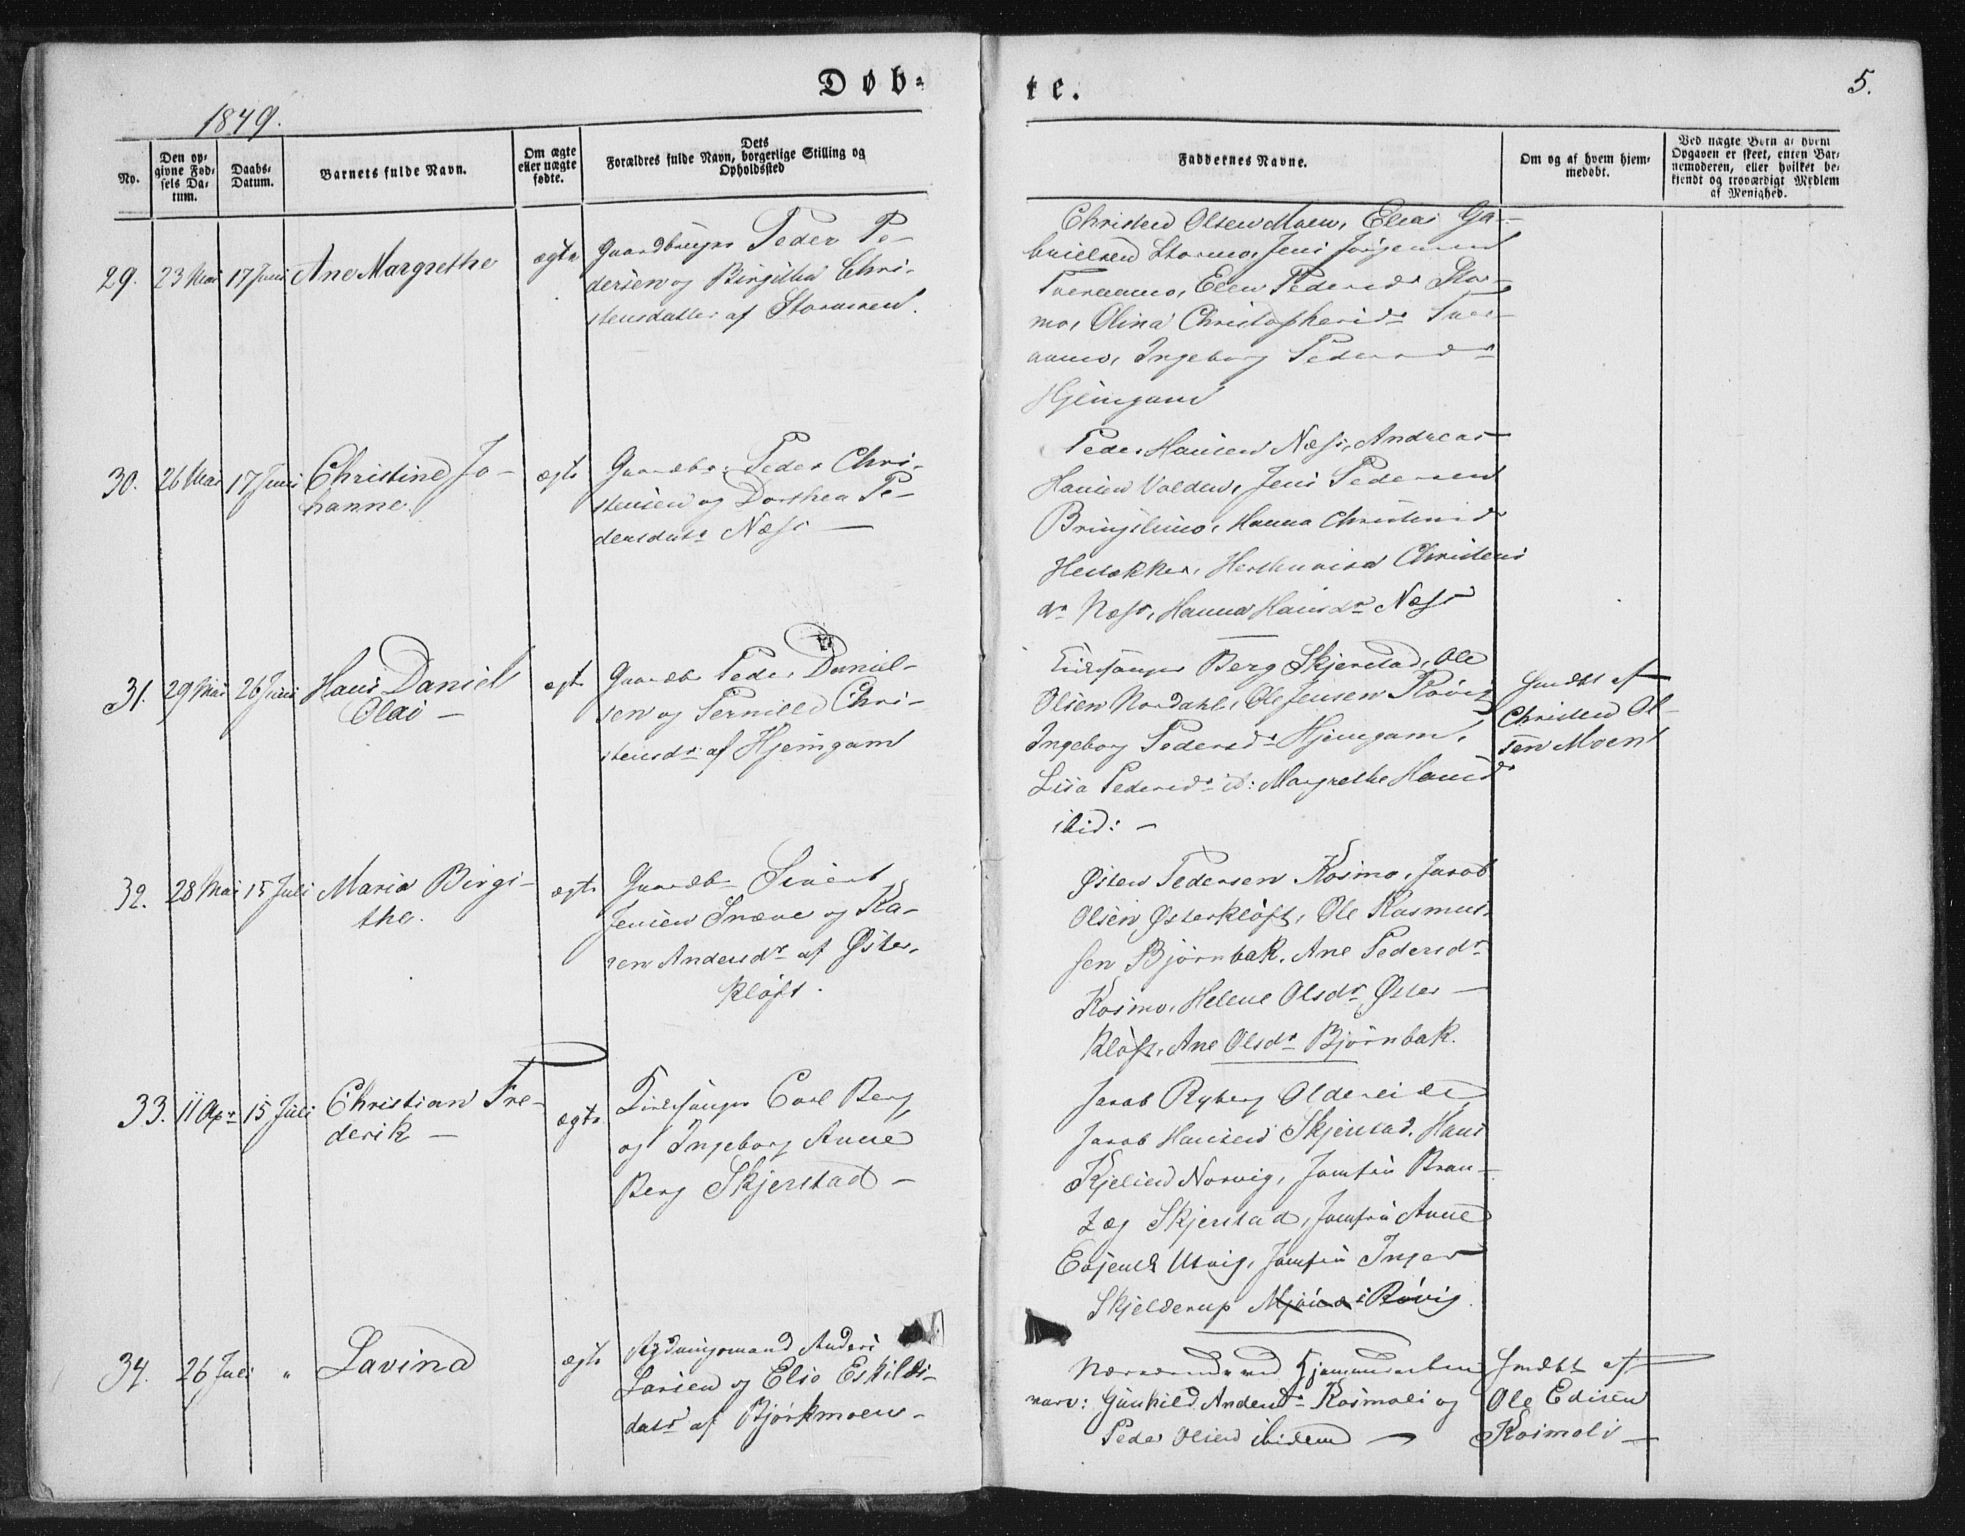 Døb-
te.
5.
1849.
No.
Den op-
givne Fød-
sels Da-
tum.
Daabs-
Datum.
Barnets fulde Navn.
Om ægte
eller uægte
fødte.
Dets
Forældres fulde Navn, borgerlige Stilling og
Opholdssted
Faddernes Navne.
Om og af hvem hjem-
medøbt.
Ved uægte Børn af hvem
Opgaven er skeet, enten Bar-
nemoderen, eller hvilket be-
kjendt og troværdigt Medlem
af Menighed.
29. 23 Mai 17 Juni Ane Margrethe ægte
Gaardbruger Peder Pe-
dersen og Birgitha Chri-
stensdatter af Stormoen.
Christen Olsen Moen, Elias Ga-
brielsen Stormo, Jens Jørgensen
Tveraamo, Elen Pedersdr Stor-
mo, Olina Christophersdr Tver-
aamo, Ingeborg Pedersdr
Hjemgam
30. 26 Mai 17 Juni Christine Jo-
hanne. ægte
Gaardbr. Peder Chri-
stensen og Dorthea Pe-
dersdatr Næss —
Peder Hansen Næss, Andreas
Hansen Valden, Jens Pedersen
Bringslimo, Hanna Christensd
Christens
dr Næss, Hanna Hansdr Næss
31. 29 Mai 26 Juni Hans Daniel
Olai — ægte
Gaardb Peder Daniel-
sen og Pernille Chri-
stensdr af Hjemgam
Kirkesanger Berg Skjerstad, Ole
Olsen Nordahl, Ole Jensen Røvig
Ingeborg Pedersdr Hjemgam,
Lisa Pedersdr id: Margrethe Hansdr
ibid: —
Christen Ol-
sen Moen
32. 28 Mai 15 Juli Maria Birgi-
the. ægte
Gaardb Sivert
Jensen Snæve og Ka-
ren Andersdr af Øster-
kløft.
Østen Pedersen Kosmo, Jacob
Olsen Østerkløft, Ole Rasmus-
sen Bjørnbak, Ane Pedersdr
Kosmo, Helene Olsdr Øster —
kløft, Ane Olsdr Bjørnbak.
33. 11 Apr 15 Juli Christian Fre-
derik — ægte
Kirkesanger Carl Berg
og Ingeborg Anne
Berg Skjerstad —
Jacob Ryberg Oldereide
Jacob Hansen Skjerstad, Hans
Kjelsen Norvig, Jomfru Bran-
zæg Skjerstad, Jomfru Anne
Evjenth Utvig, Jomfru Inger
Skjelderup Mjönes i Røvig.
34. 26 Juli " Lavina ægte
Rydningsmand Anders
Larsen og Elio Eskilds-
datr af Bjørkmoen —
Nærværende ved Hjemmedaaben
vare: Gunhild Andersdr Kosmoli og
Peder Olsen ibidem —
Ole Edisen
Kosmoli —